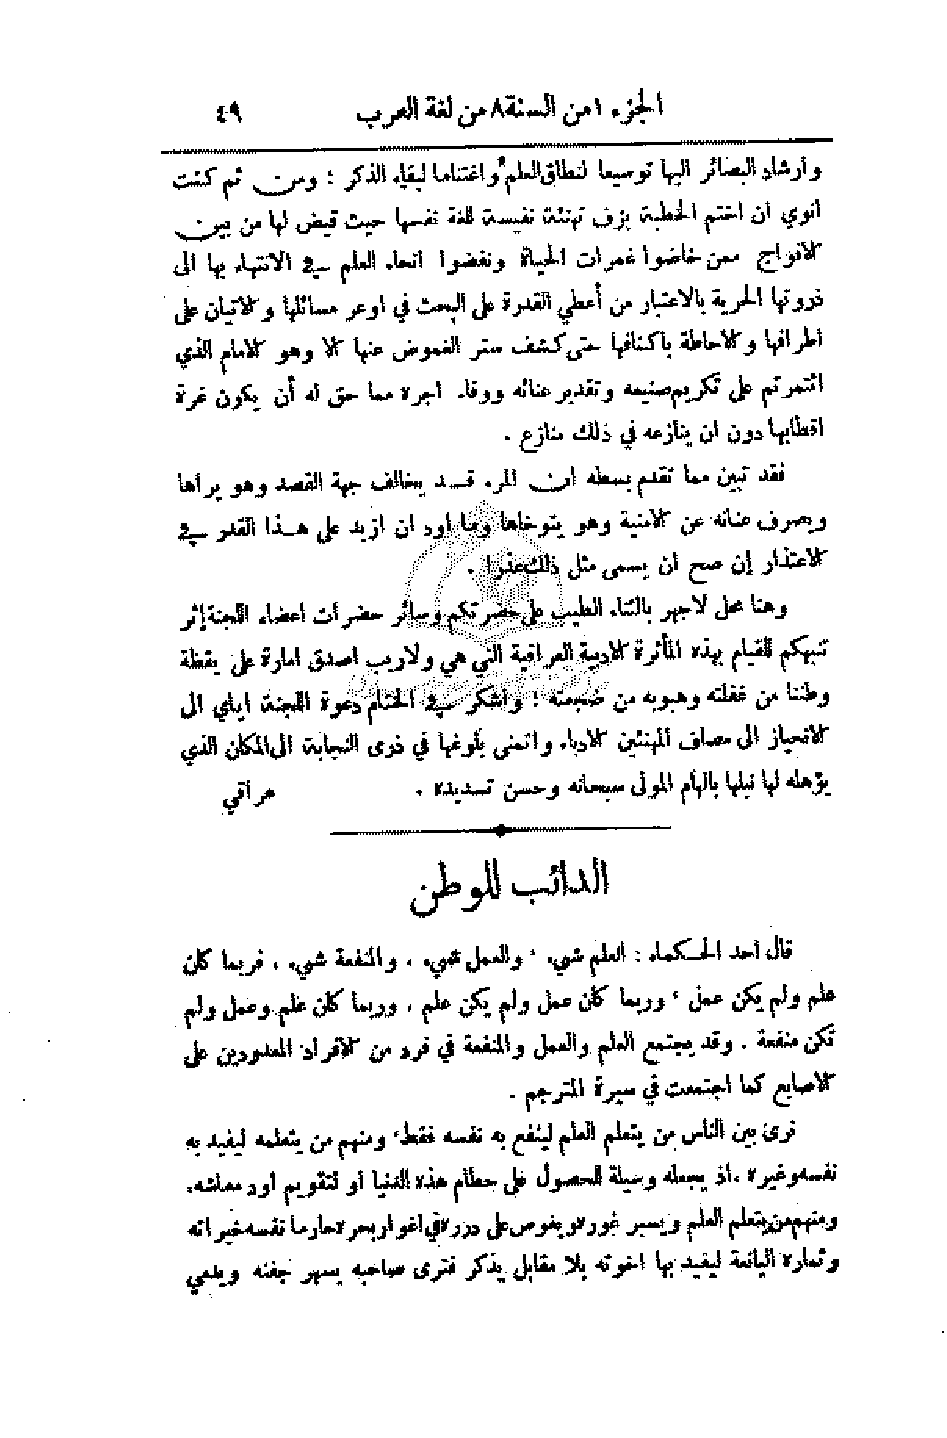 الجزء ١ من السنة ٨ من لغة العرب ٤٩
وارشاد البصائر اليها توسيعا لنطاق العلم واغتناما لبقاء الذكر ؛ ومن ثم كنت
انوي ان اختم الخطبة بزف تهنئة نفيسة للغة نفسها حيث قيض لها من بين
الافواج ممن خاضوا غمرات الحياة ونفضوا انحاء العلم في الانتهاء بها الى
ذروتها الحرية بالاعتبار من أعطي القدرة على البحث في اوعر مسائلها والاتيان على
اطرافها والاحاطة باكنافها حتى كشف ستر الغموض عنها الا وهو الامام الذي
ائتمرتم على تكريم صنيعه وتقدير عنائه ووفاء اجره مما حق له أن يكون غرة
اقطابها دون ان ينازعه في ذلك منازع .
فقد تبين مما تقدم بسطه ان المرء قد يخالف جهة القصد وهو يراها
ويصرف عنانه عن الامنية وهو يتوخاها وما اود ان ازيد على هذا القدر في
الاعتذار إن صح ان يسمى مثل ذلك عذرا .
وهنا محل لاجهر بالثناء الطيب على حضرتكم وسائر حضرات اعضاء اللجنة إثر
تنبهكم للقيام بهذه المأثرة الادبية العراقية التي هي ولاريب اصدق امارة على يقظة
وطننا من غفلته وهبوبه من ضجعته ؛ واشكر في الختام دعوة اللجنة اياي الى
الانحياز الى مصاف المهنئين الادباء واتمنى بلوغها في ذوى النجابة الى المكان الذي
يؤهله لها نبلها بالهام المولى سبحانه وحسن تسديده . عراقي
الدائب للوطن
قال احد الحكماء : العلم شيء ، والعمل شيء ، والمنفعة شيء ، فربما كان
علم ولم يكن عمل ، وربما كان عمل ولم يكن علم ، وربما كان علم وعمل ولم
تكن منفعة . وقد يجتمع العلم والعمل والمنفعة في فرد من الافراد المعدودين على
الاصابع كما اجتمعت في سيرة المترجم .
نرى بين الناس من يتعلم العلم لينفع به نفسه فقط ، ومنهم من يتعلمه ليفيد به
نفسه وغيره ، اذ يجعله وسيلة للحصول على حطام هذه الدنيا او لتقويم اود معاشه .
ومنهم من يتعلم العلم ويسبر غوره ويغوص على درره في اغوار بحره حارما نفسه خيراته
وثماره اليانعة ليفيد بها اخوته بلا مقابل يذكر فترى صاحبه يسهر جفنه ويدمي